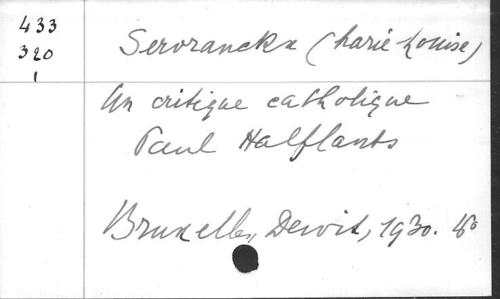 433
320
1
Servranckx (Marie-Louise)
Un critique catholique
Paul Halflants
Bruxelles, Dewit, 1930. 8o